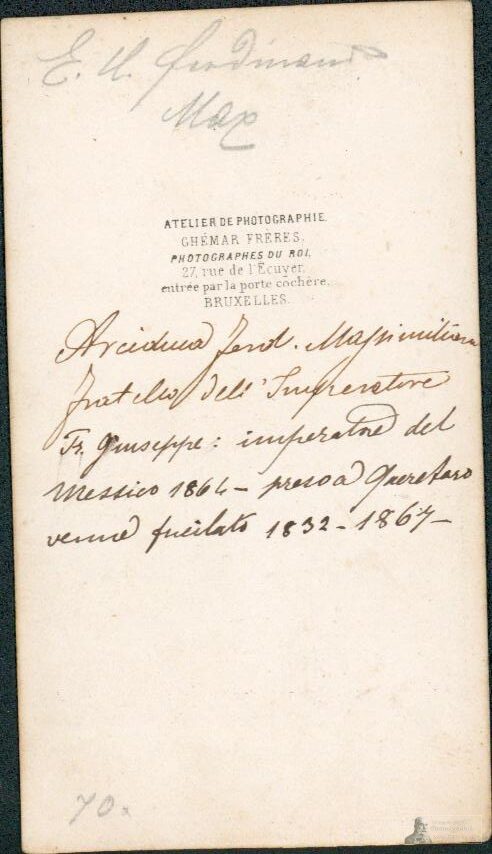 E. H. Ferdinand
Max
ATELIER DE PHOTOGRAPHIE.
GHÉMAR FRÈRES,
PHOTOGRAPHES DU ROI,
27, rue de l'Écuyer,
entrée par la porte cochère.
BRUXELLES.
Arciduca Ferd. Massimiliano
fratello dell'Imperatore
Fr. Giuseppe: imperatore del
Messico 1864 - preso a Queretaro
venne fucilato 1832 - 1867 -
70.